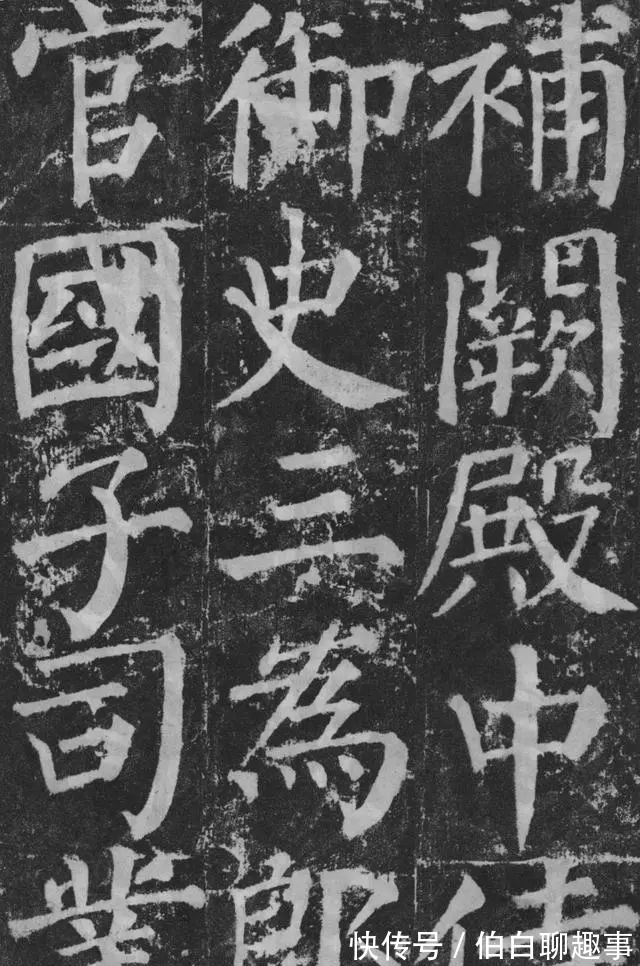 補闕殿中侍
御史三為郎
官國子司業
快传号/伯白聊趣事